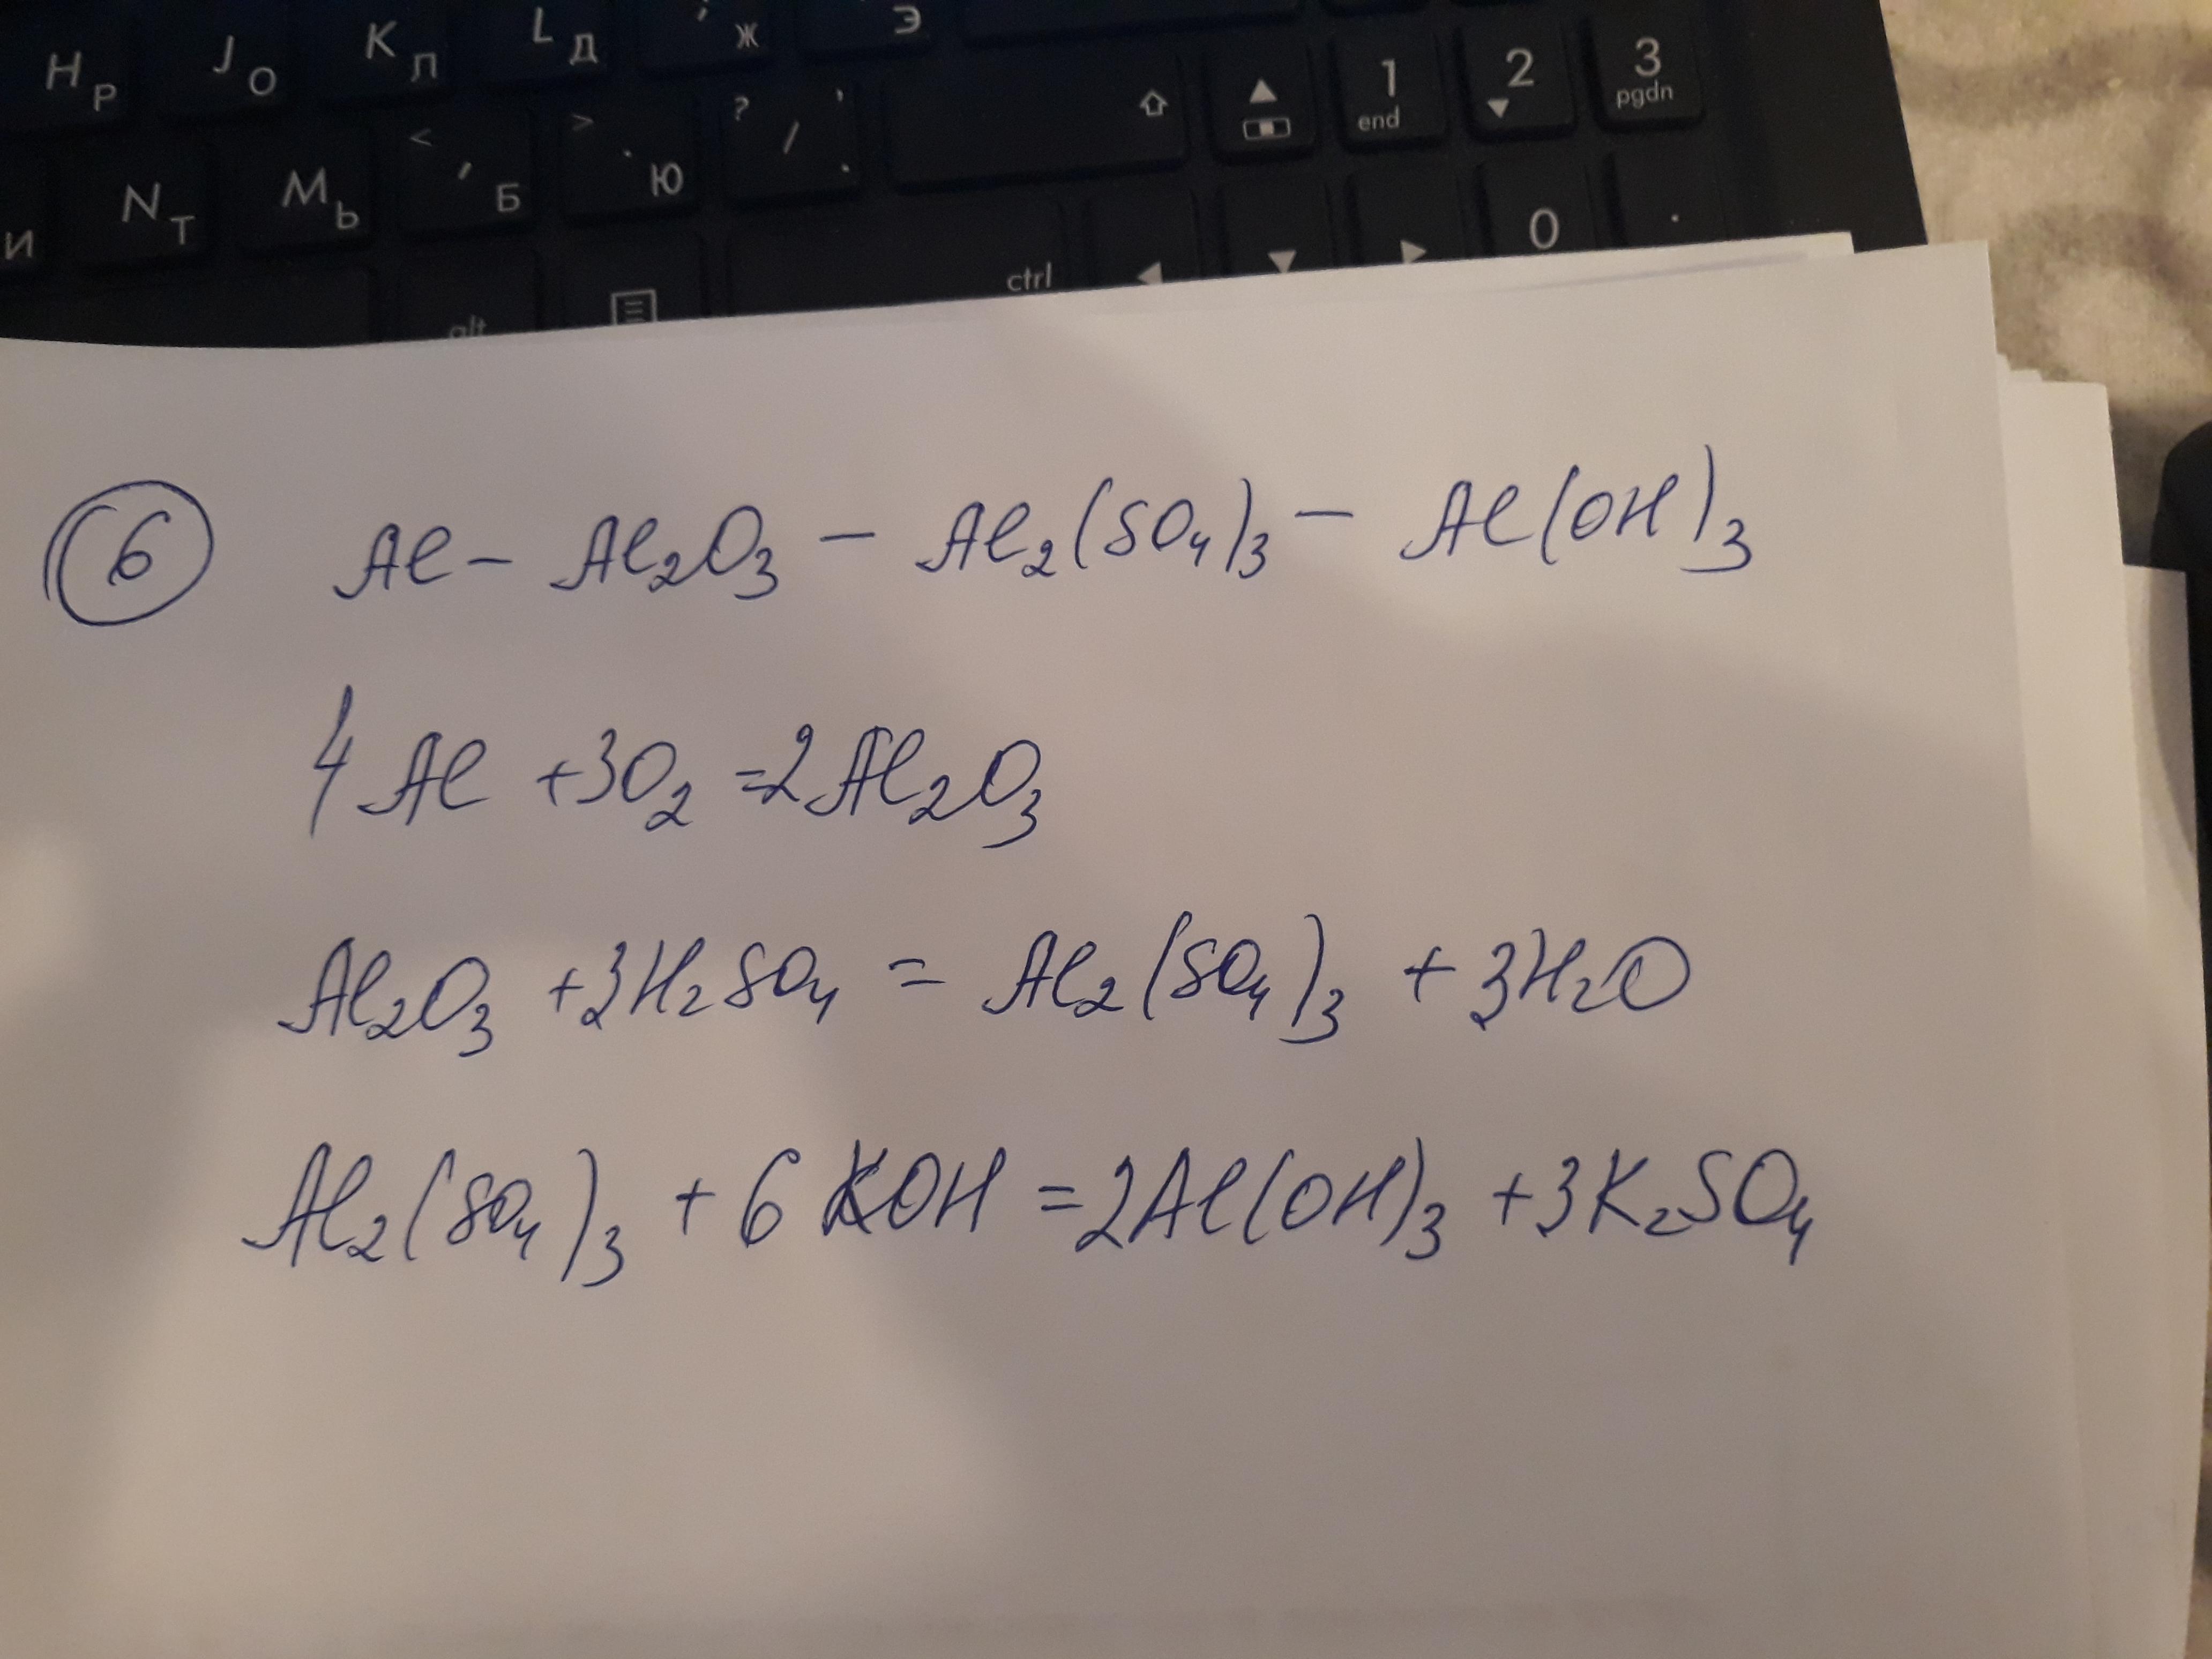 H Р J О K Л L Д ' Ж Э
И N Т M Ь < , Б > . Ю ? / ' . 1 end 2 3 pgdn
alt ctrl 0 .
6 Al – Al₂O₃ – Al₂(SO₄)₃ – Al(OH)₃
4Al +3O₂ =2Al₂O₃
Al₂O₃ +3H₂SO₄ = Al₂(SO₄)₃ + 3H₂O
Al₂(SO₄)₃ + 6 KOH =2Al(OH)₃ +3K₂SO₄